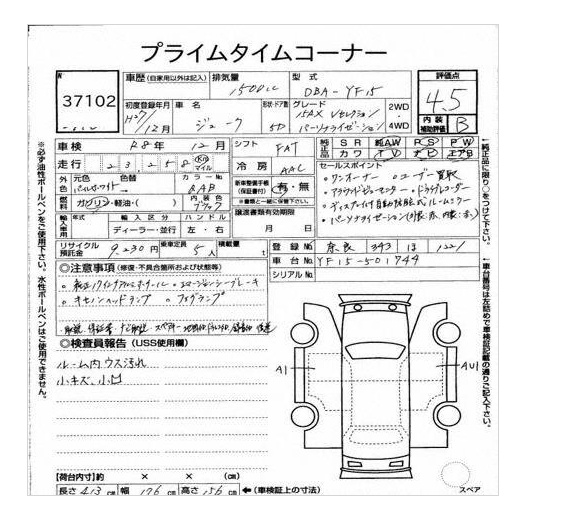 プライムタイムコーナー
37102
車歴 (自家用以外は記入)
排気量
1500cc
型式
DBA-YF15
評価点
4.5
内装
補助評価
B
初度登録年月
H27/12月
車名
ジューク
形状・ドア数
5D
グレード
15RX Vセレクション
パーソナライゼーション
2WD
4WD
車検
R8年 12月
シフト
FAT
純正品
SR 純AW PS PW
カワ TV ナビ エアB
走行
23,258
Km
マイル
冷房
AAC
セールスポイント
。ワンオーナー 。ユーザー買取
。アラウンドビューモニター 。ドライブレコーダー
外色
元色
色替
カラーNo
パールホワイト→
QAB
新車整備手帳
(保証書付)
有・無
※書類と一緒に保管下さい。
燃料
ガソリン・軽油・( )
内装色
ブラック
譲渡書類有効期限
月 日
輸入車用
年式
輸入区分
ハンドル
ディーラー・並行
左・右
リサイクル
預託金
9,230円
乗車定員
5人
積載量
t
登録No
奈良 343 ほ 1221
車台No
YF15-501744
シリアルNo
◎注意事項 (修復・不具合箇所および状態等)
。キセノンヘッドランプ 。フォグランプ
◎検査員報告 (USS使用欄)
ルーム内ウス汚れ
小キズ、小凹
A1
AU1
【荷台内寸】約 × × (cm)
長さ 413 cm 幅 176 cm 高さ 156 cm ←(車検証上の寸法)
スペア
※必ず油性ボールペンをご使用下さい。水性ボールペンはご使用できません。
←純正品に限り○をつけて下さい。
←車台番号は左詰めで車検証記載の通りご記入下さい。